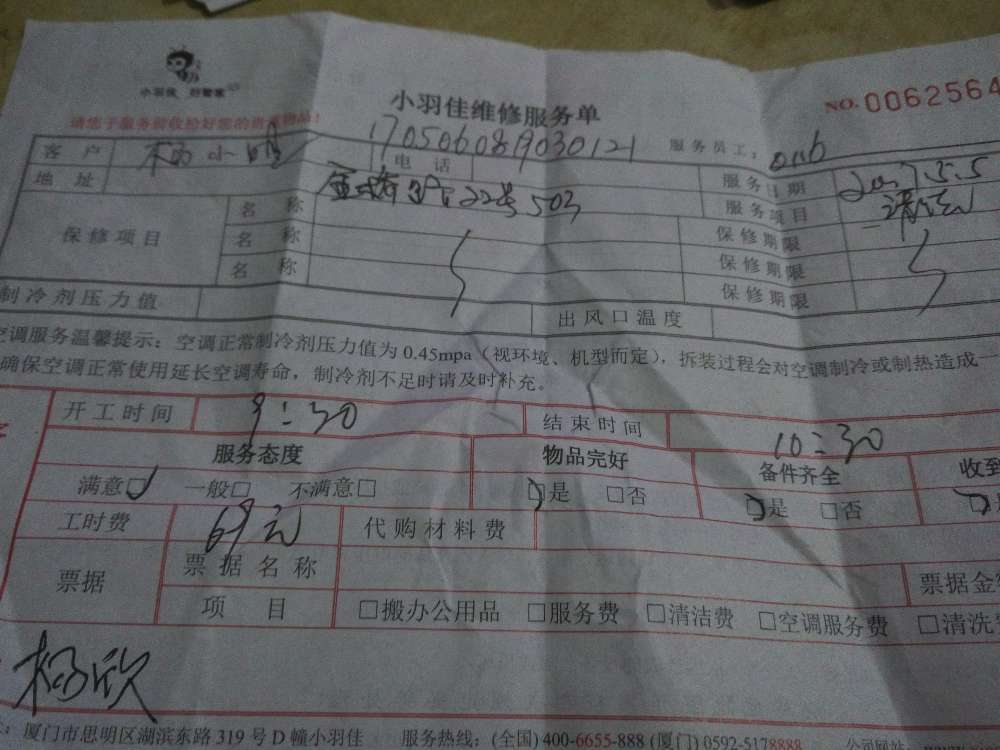 小羽佳 好管家
小羽佳维修服务单
NO. 0062564
请您于服务前收拾好您的贵重物品!
170506089030121
客户 杨小 电话 服务员工: 0116
地址 22号503 服务日期 2017.5.5
保修项目 名称 服务项目 清洗
名称 保修期限
名称 保修期限
保修期限
制冷剂压力值 出风口温度
空调服务温馨提示: 空调正常制冷剂压力值为0.45mpa(视环境、机型而定), 拆装过程会对空调制冷或制热造成一
确保空调正常使用延长空调寿命, 制冷剂不足时请及时补充。
开工时间 9:30 结束时间 10:30
服务态度 物品完好 备件齐全 收到
满意□ 一般□ 不满意□ □是 □否 □是 □否
工时费 69元 代购材料费
票据 票据名称 票据金
项目 □搬办公用品 □服务费 □清洁费 □空调服务费 □清洗
杨欣
厦门市思明区湖滨东路319号D幢小羽佳 服务热线: (全国) 400-6655-888 (厦门) 0592-5178888 公司网站